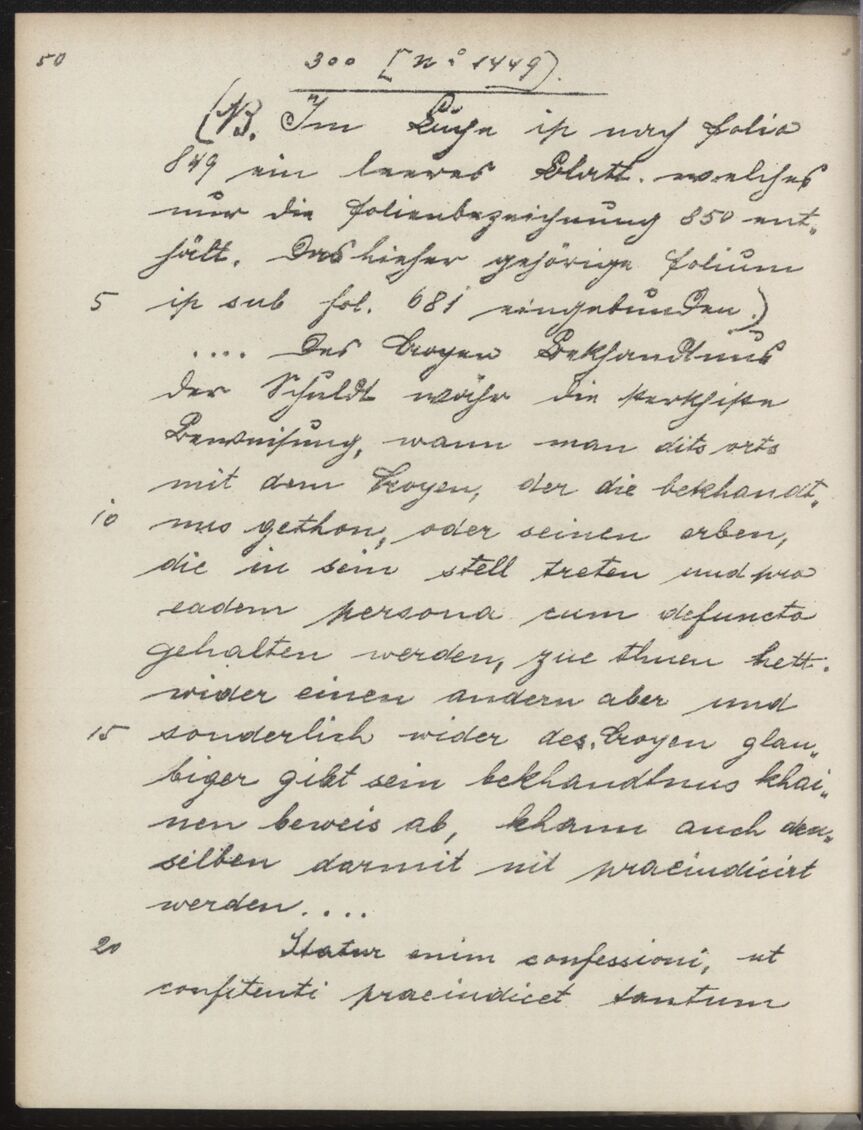 50
300 [No 1449).
(NB. Im Buche ist nach folio
849 ein leeres Blatt. welches
nur die folienbezeichnung 850 ent„
hält. Das hieher gehörige folium
5 ist sub fol. 681 eingebunden.)
.... Des Croyen Bekhandtnus
der Schuldt währ die sterkhiste
Beweisung, wann man dits orts
mit dem Croyen, der die bekhandt„
10 nus gethon, oder seinen erben,
die in sein stell treten und pro
eadem persona cum defuncto
gehalten werden, zue thuen hett.
wider einen andern aber und
15 sonderlich wider des Croyen glau„
biger gibt sein bekhandtnus khai„
nen beweis ab, khann auch den„
selben darmit nit praeiudicirt
werden....
20 Statur enim confessioni, ut
confitenti praeiudicet tantum